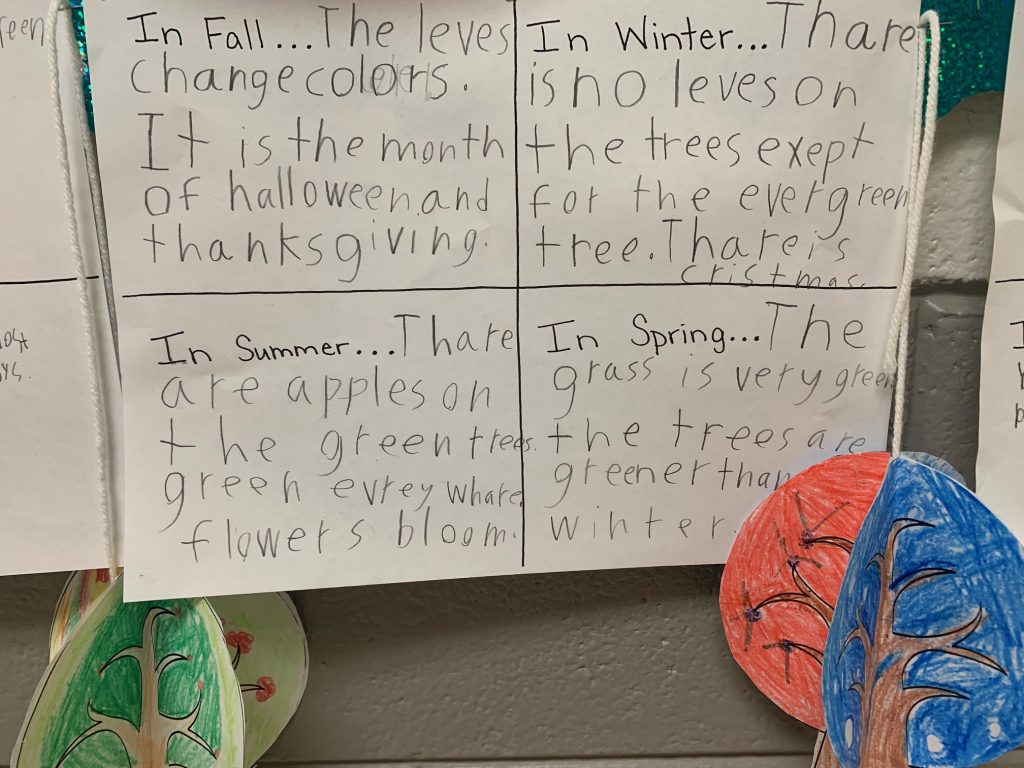 In Fall...The leves
change colors.
It is the month
of halloween and
thanksgiving.
In Winter...Thare
is no leves on
the trees exept
for the evergreen
tree. Thare is
cristmas.
In Summer...Thare
are apples on
the green trees.
green evrey whare
flowers bloom.
In Spring...The
grass is very green
the trees are
greener than
winter